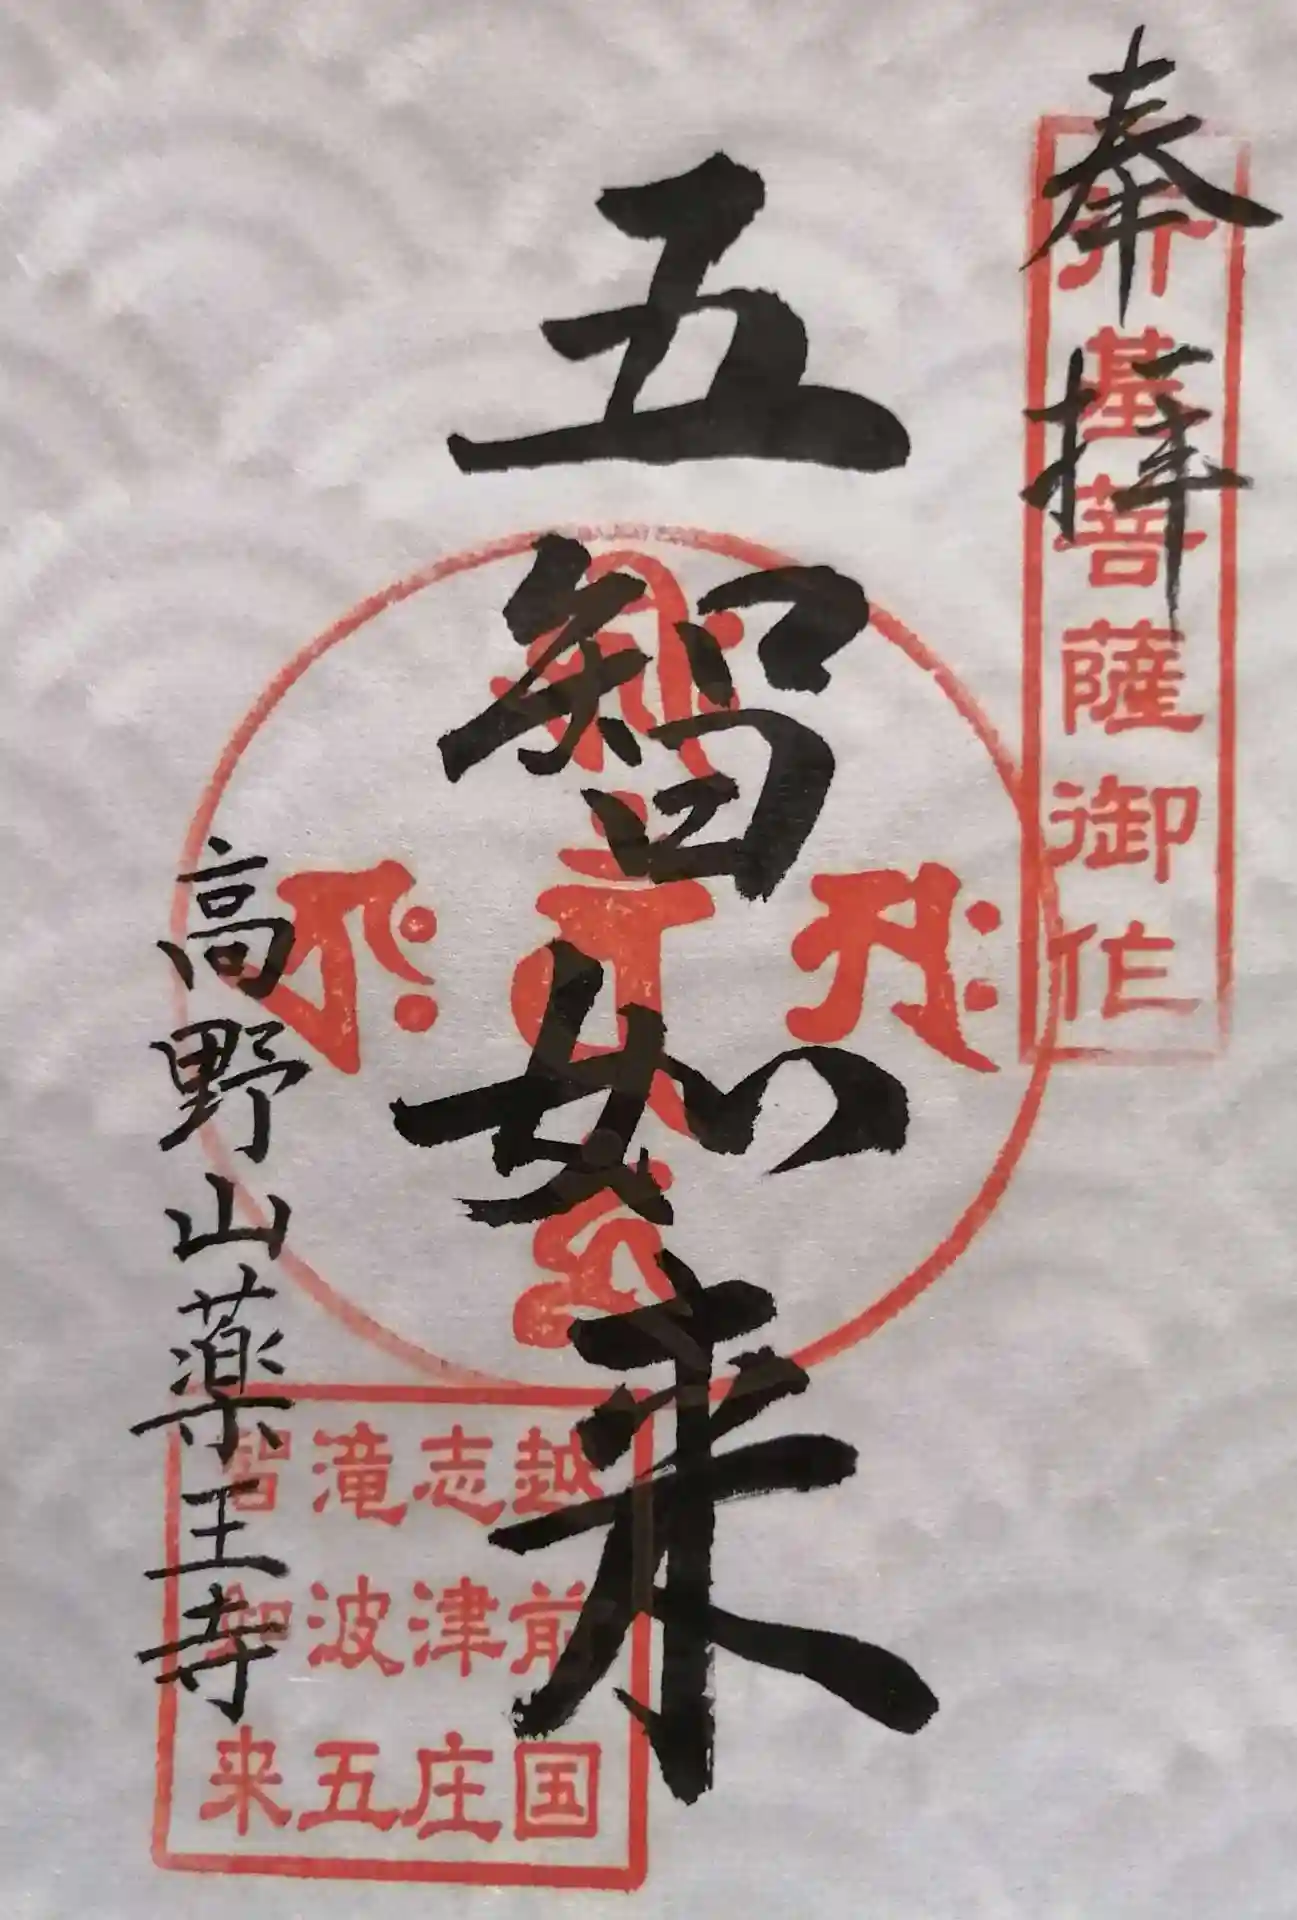 奉拝
行基菩薩御作
五智如来
越前国
志津庄
滝波五
智如来
高野山薬王寺